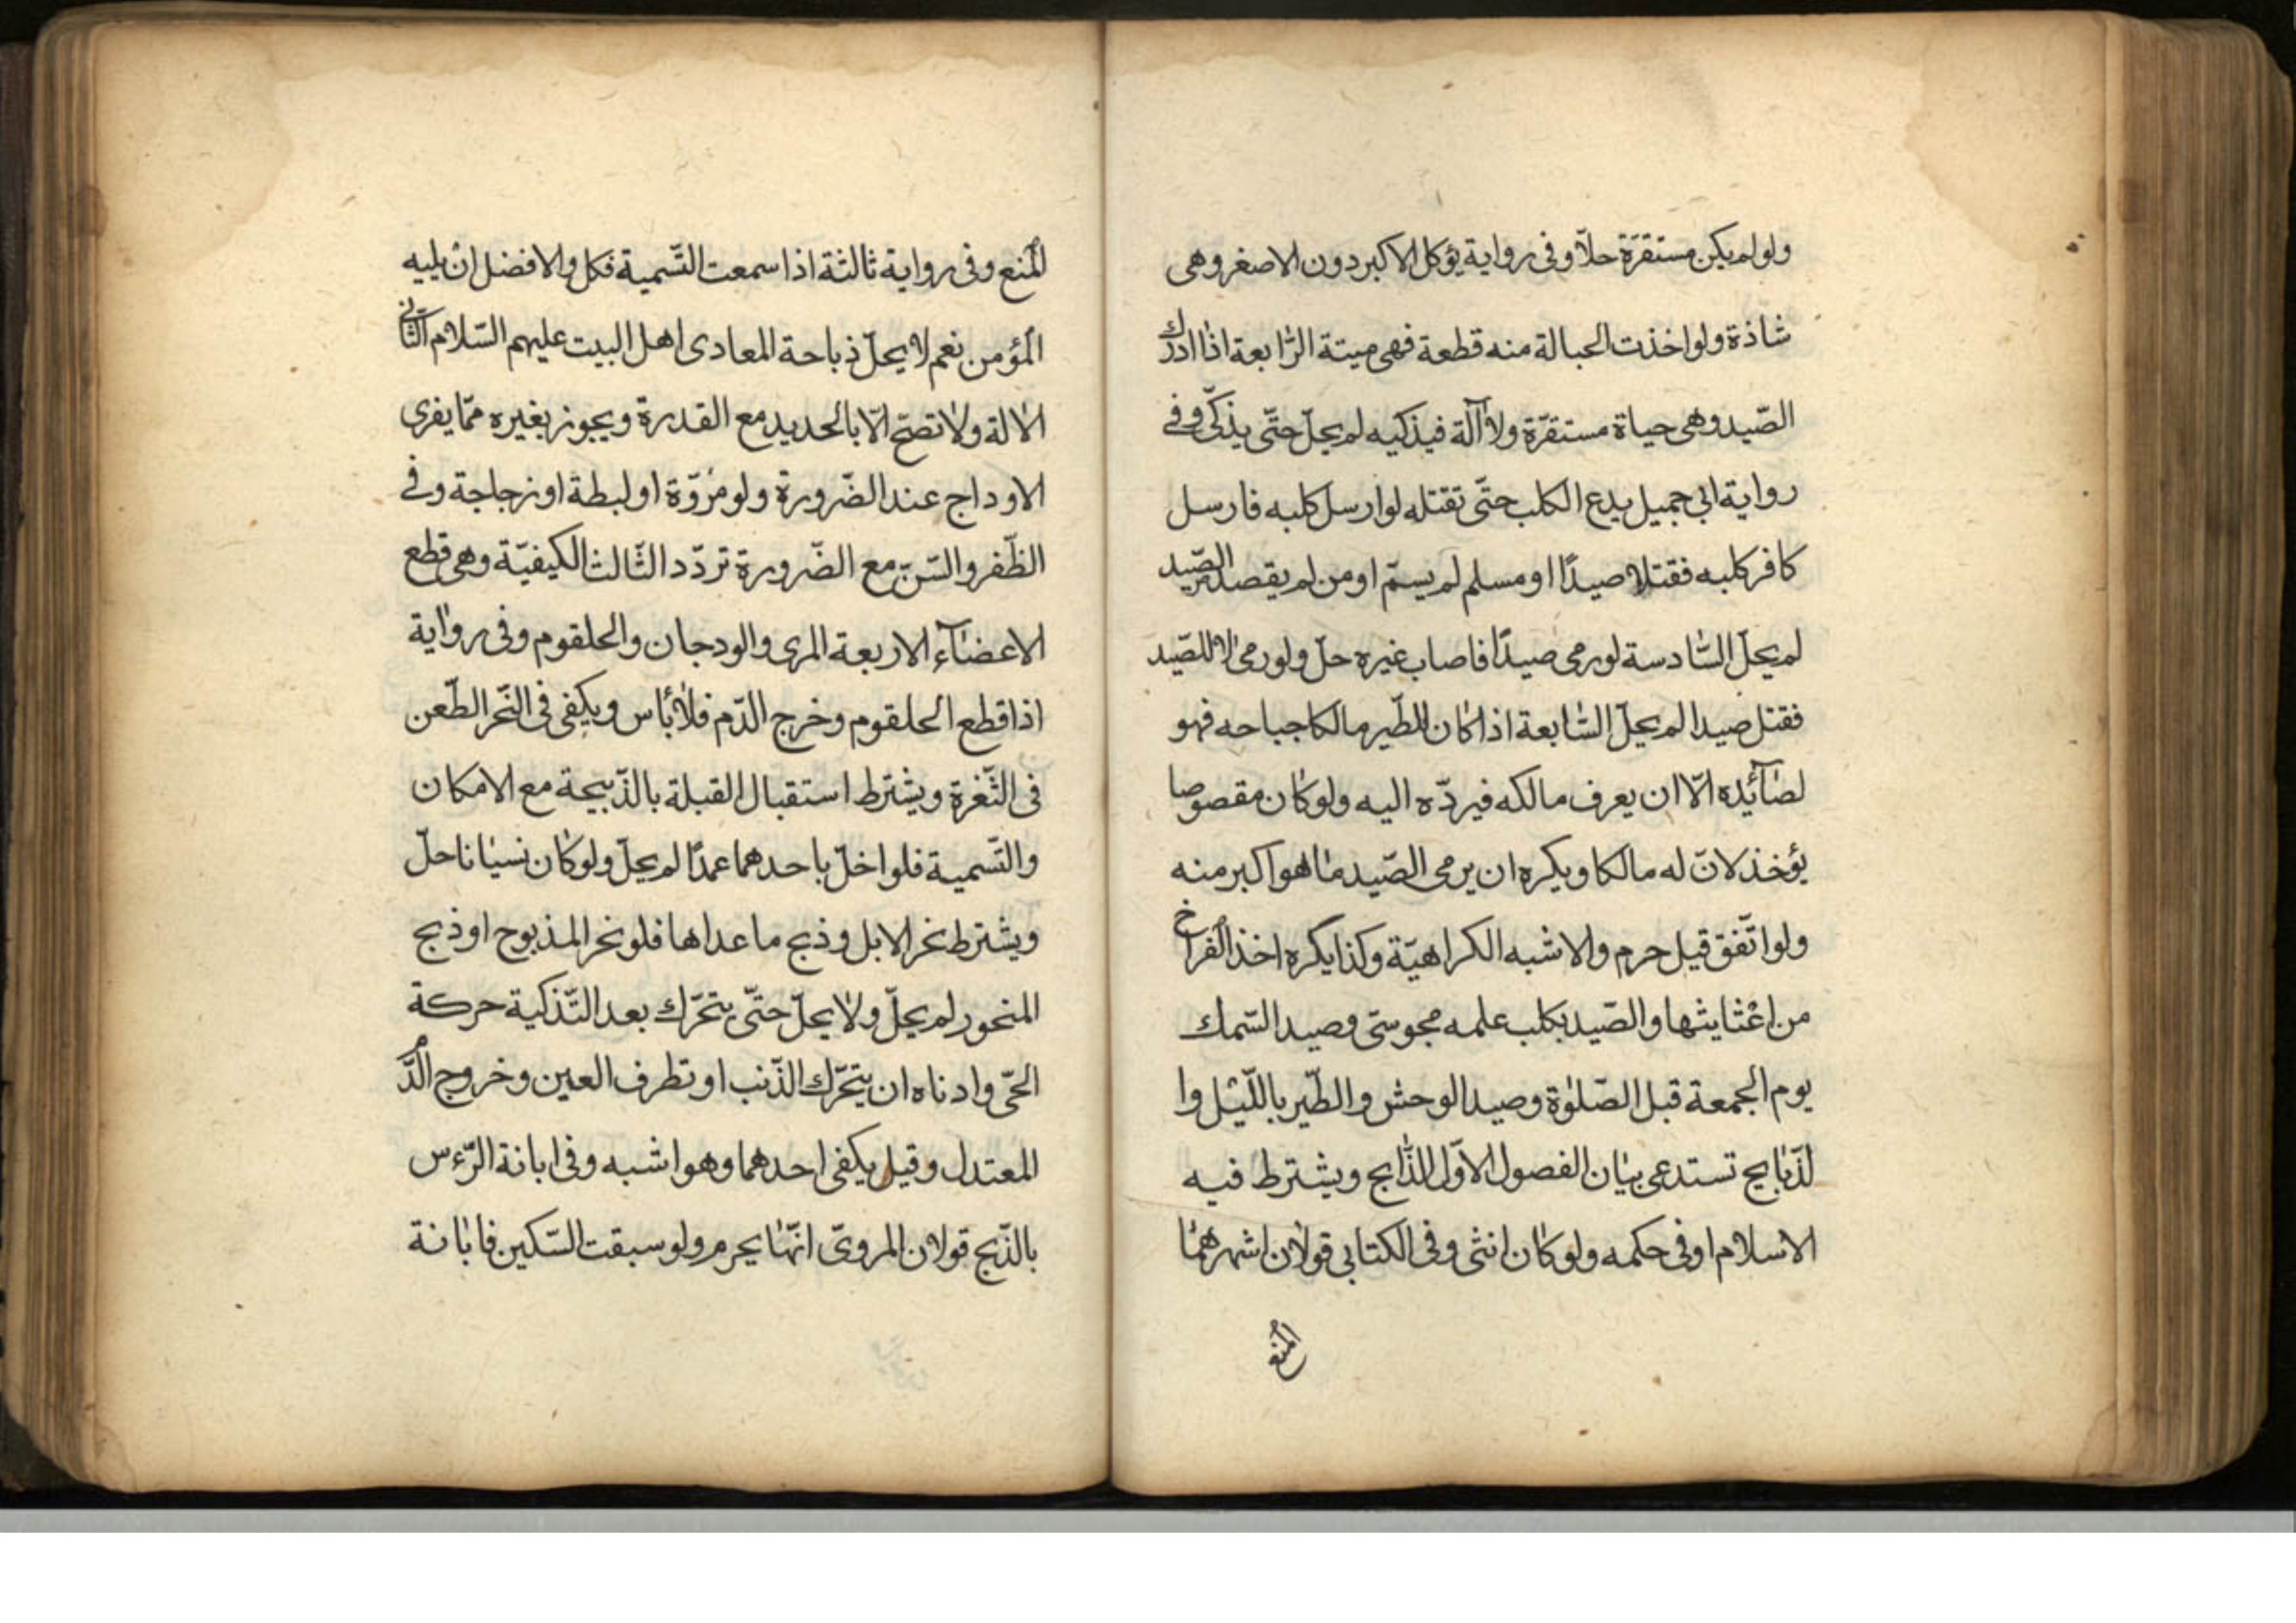 ولو لم يكن مستقرّة حلّا وفى رواية يؤكل الاكبر دون الاصغر وهى
شاذة ولو اخذت الحبالة منه قطعة فهى ميتة الرّابعة اذا ادرك
الصّيد وهى حياة مستقرّة ولا آلة فيذكيه لم يحلّ حتّى يذكّى وفى
رواية ابى جميل يدع الكلب حتّى تقتله لو ارسل كلبه فارسل
كافر كلبه فقتلا صيدًا او مسلم لم يسمّ او من لم يقصد الصّيد
لم يحلّ السّادسة لو رمى صيدًا فاصاب غيره حلّ ولو رمى لا للصّيد
فقتل صيدا لم يحلّ السّابعة اذا كان للطّير مالكا جباحه فهو
لصآئده الّا ان يعرف مالكه فيردّه اليه ولو كان مقصوصا
يؤخذ لانّ له مالكا ويكره ان يرمى الصّيد ما هو اكبر منه
ولو اتّفق قيل حرم والاشبه الكراهيّة وكذا يكره اخذ الفراخ
من اعْثايثها والصّيد بكلب علمه مجوسّى وصيد السّمك
يوم الجمعة قبل الصّلوٰة وصيد الوحش والطّير باللّيل وا
لذّبايح تستدعى بيان الفصول الاوّل الذّابح ويشترط فيه
الاسلام او فى حكمه ولو كان انثى وفى الكتابى قولان اشهرهما
المنع
المنع وفى رواية ثالثة اذا سمعت التّسمية فكل والافضل ان يليه
المؤمن نعم لا يحلّ ذباحة المعادى اهل البيت عليهم السّلام الثّانى
الالة ولا تصحّ الّا بالحديد مع القدرة ويجوز بغيره ممّا يفرى
الاوداج عند الضّرورة ولو مروّة او لبطة او زجاجة وفى
الظّفر والسّنّ مع الضّرورة تردّد الثّالث الكيفيّة وهى قطع
الاعضآء الاربعة المرى والودجان والحلقوم وفى رواية
اذا قطع الحلقوم وخرج الدّم فلا بأس ويكفى فى النّحر الطّعن
فى الثّغرة ويشترط استقبال القبلة بالذّبيحة مع الامكان
والتّسمية فلو اخلّ باحدهما عمدًا لم يحلّ ولو كان نسيانا حلّ
ويشترط نحر الابل وذبح ما عداها فلو نحر المذبوح او ذبح
المنحور لم يحلّ ولا يحلّ حتّى يتحرّك بعد التّذكية حركة
الحىّ وادناه ان يتحرّك الذّنب او تطرف العين وخروج الدّم
المعتدل وقيل يكفى احدهما وهو اشبه وفى ابانة الرّءس
بالذّبح قولان المروىّ انّها يحرم ولو سبقت السّكين فابانة